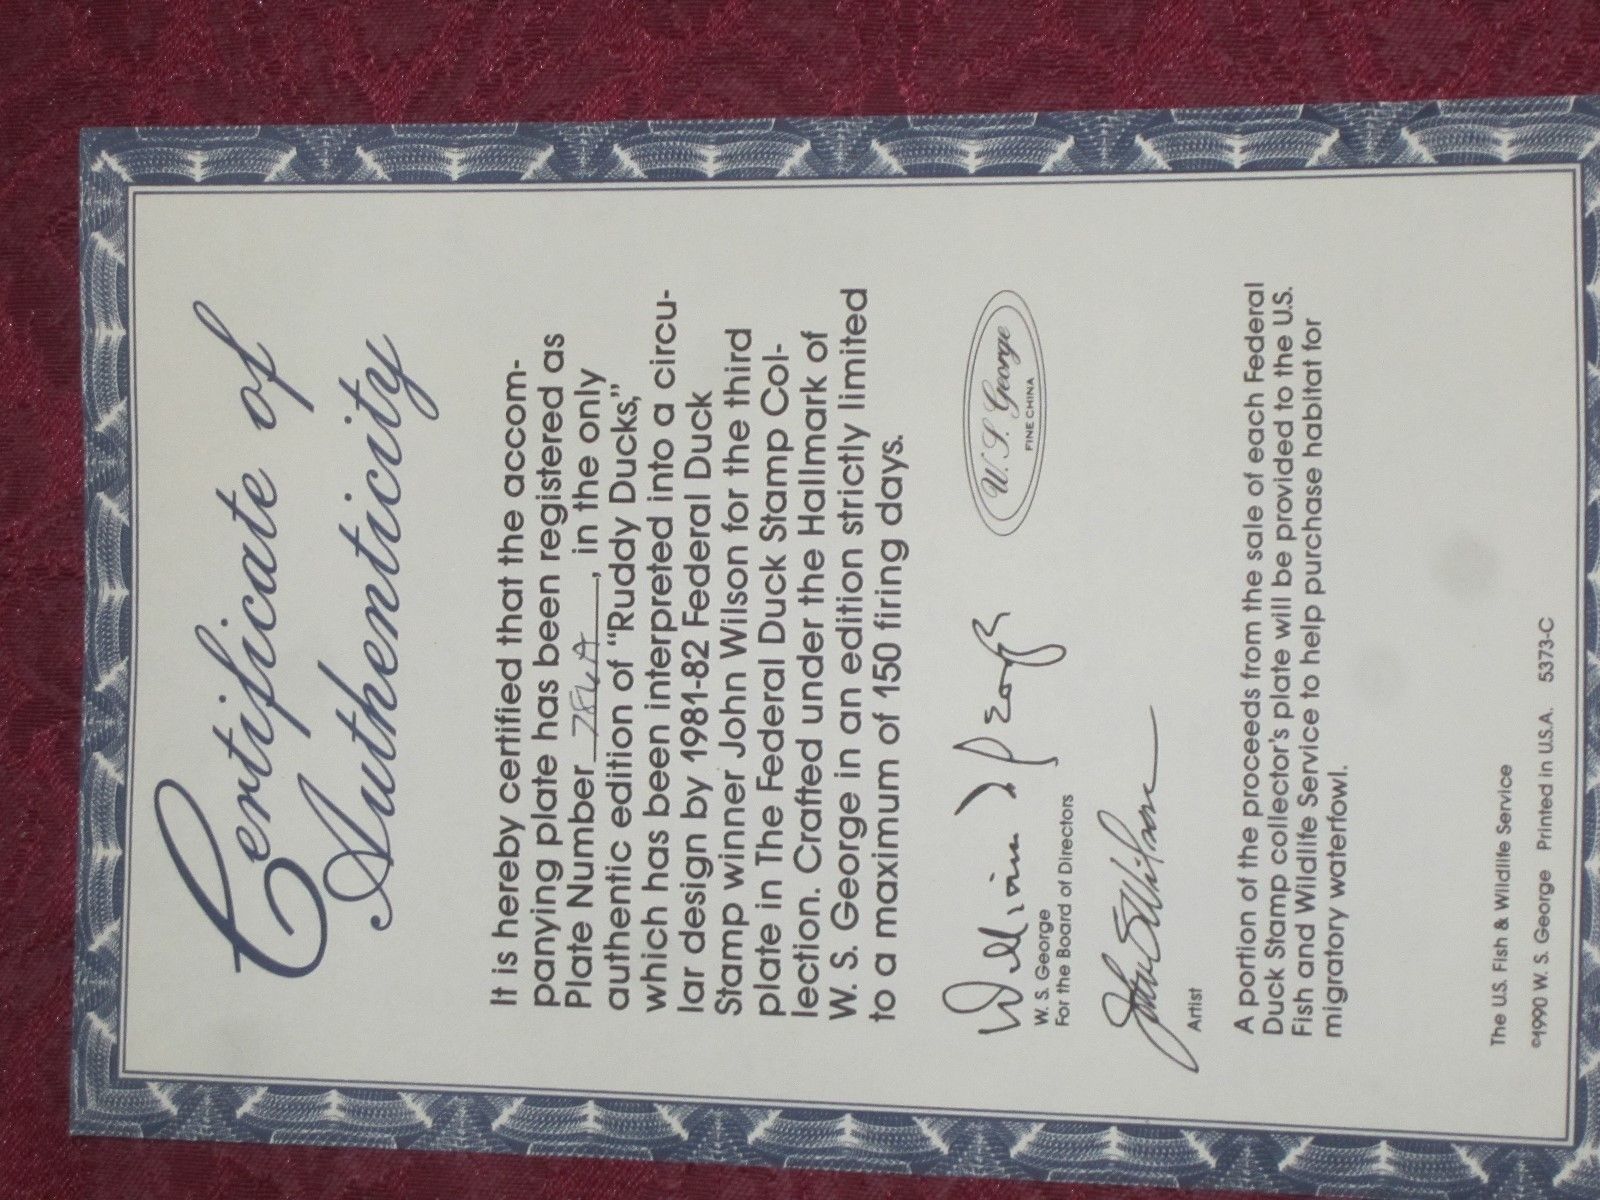 Certificate of
Authenticity
It is hereby certified that the accom-
panying plate has been registered as
Plate Number 7864A, in the only
authentic edition of "Ruddy Ducks,"
which has been interpreted into a circu-
lar design by 1981-82 Federal Duck
Stamp winner John Wilson for the third
plate in The Federal Duck Stamp Col-
lection. Crafted under the Hallmark of
W. S. George in an edition strictly limited
to a maximum of 150 firing days.
William S George
W. S. George
FINE CHINA
W. S. George
For the Board of Directors
John S Wilson
Artist
A portion of the proceeds from the sale of each Federal
Duck Stamp collector's plate will be provided to the U.S.
Fish and Wildlife Service to help purchase habitat for
migratory waterfowl.
The U.S. Fish & Wildlife Service
©1990 W. S. George Printed in U.S.A. 5373-C